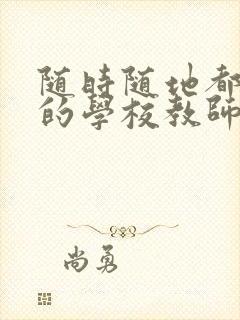 随時随地都
的學校教師
尚勇